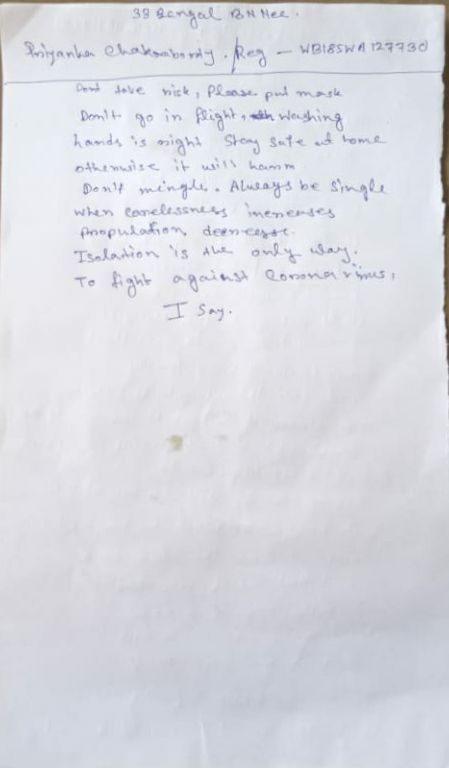 33 Bengal BN Ncc.
Priyanka Chakraborty. Reg - WB18SWA127730
Dont take risk, Please put mask
Don't go in flight, washing
hands is right Stay safe at home
otherwise it will harm
Don't mingle. Always be single
When carelessness increases
Population decrease.
Isolation is the only way.
To fight against Coronavirus,
I Say.